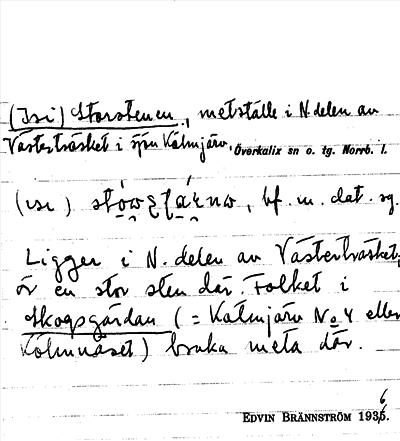 (Isi) Storstenen, metställe i N delen av
Västerträsket i sjön Kälmjärv, Överkalix sn o. tg. Norrb. l.
(ise) bf. m. dat. sg.
Ligger i N. delen av Västerträsket,
är en stor sten där. Folket i
Skogsgårdan (= Kälmjärv No 4 eller
Kölmnäset) bruka meta där.
EDVIN BRÄNNSTRÖM 1936.